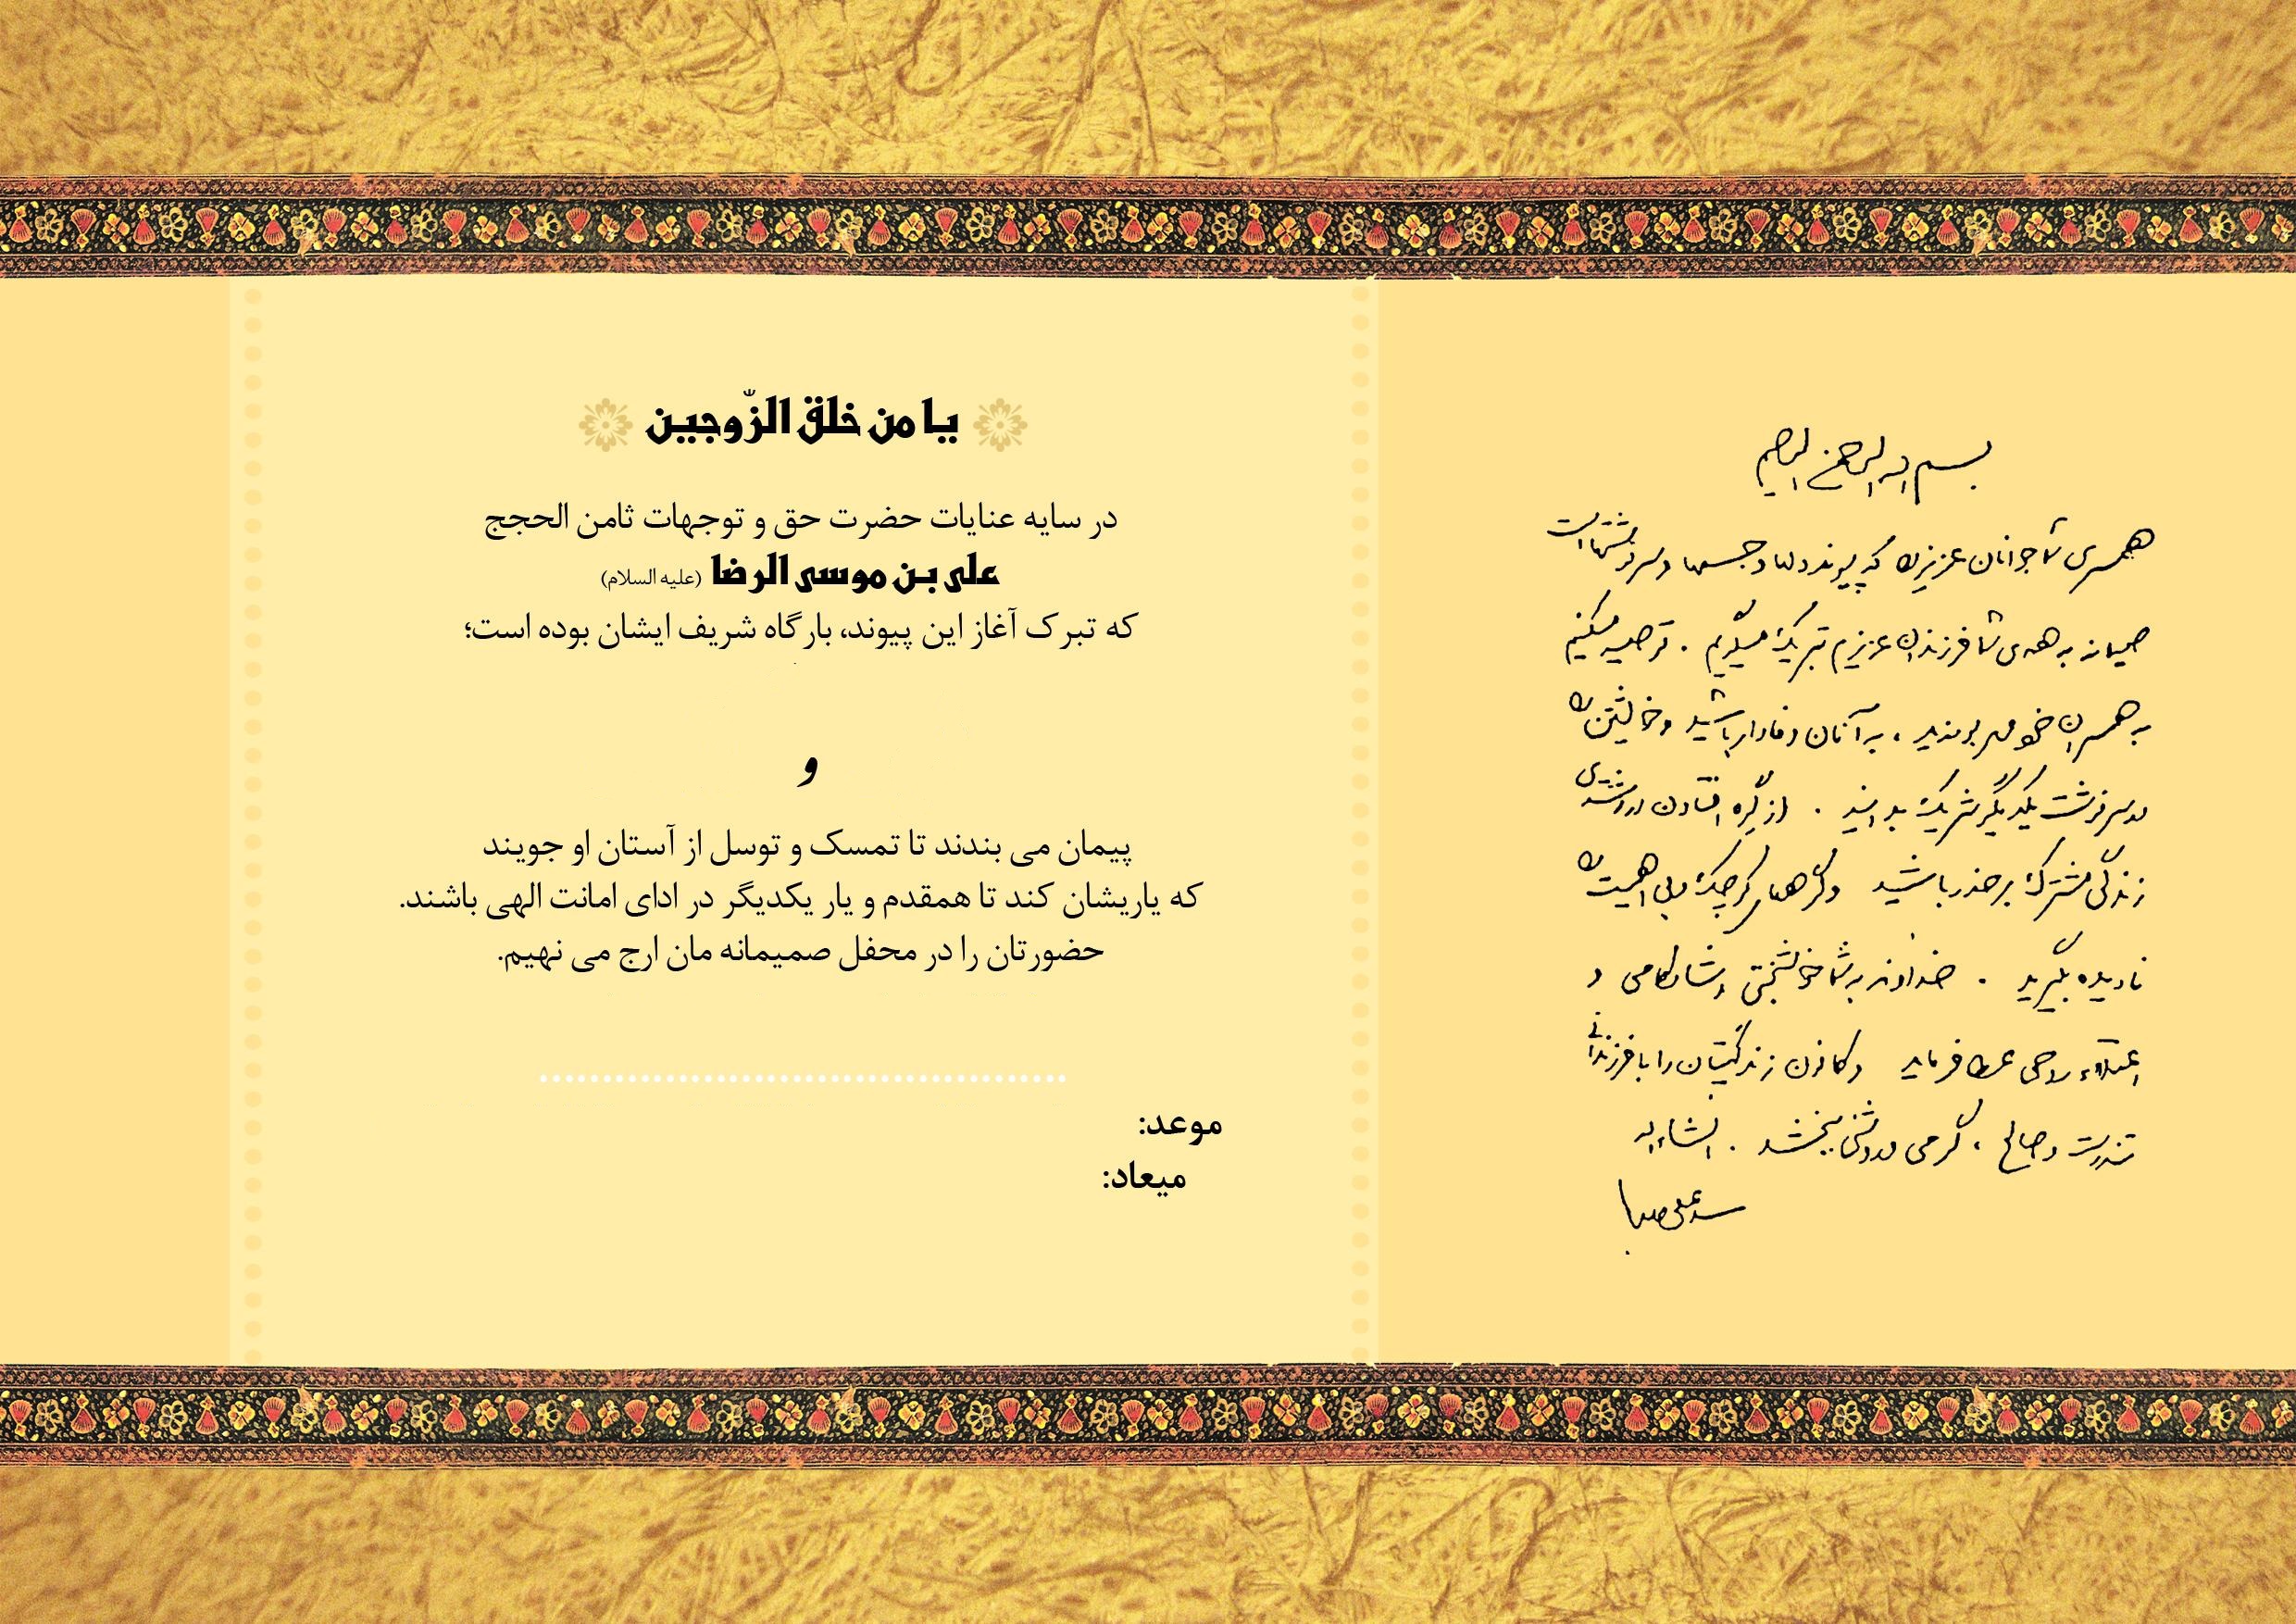 بسم الله الرحمن الرحیم
همسری شما جوانان عزیز را که پیوند دلها و جسمها و سرنوشتهاست
صمیمانه به همه‌ی شما فرزندان عزیزم تبریک میگویم . توصیه میکنم
به همسران خود مهر بورزید ، به آنان وفادار باشید و خویشتن را
در سرنوشت یکدیگر شریک بدانید . از گره افتادن در رشته‌ی
زندگی مشترک برحذر باشید و گره‌های کوچک و بی اهمیت را
نادیده بگیرید . خداوند به شما خوشبختی و شادکامی و
اعتلاء روحی عطا فرماید و کانون زندگیتان را با فرزندانی
تندرست و صالح ، گرمی و روشنی ببخشد . انشاءالله
سید علی خامنه‌ای
یا من خلق الزّوجین
در سایه عنایات حضرت حق و توجهات ثامن الحجج
علی بن موسی الرضا (علیه السلام)
که تبرک آغاز این پیوند، بارگاه شریف ایشان بوده است؛
و
پیمان می بندند تا تمسک و توسل از آستان او جویند
که یاریشان کند تا همقدم و یار یکدیگر در ادای امانت الهی باشند.
حضورتان را در محفل صمیمانه مان ارج می نهیم.
موعد:
میعاد: